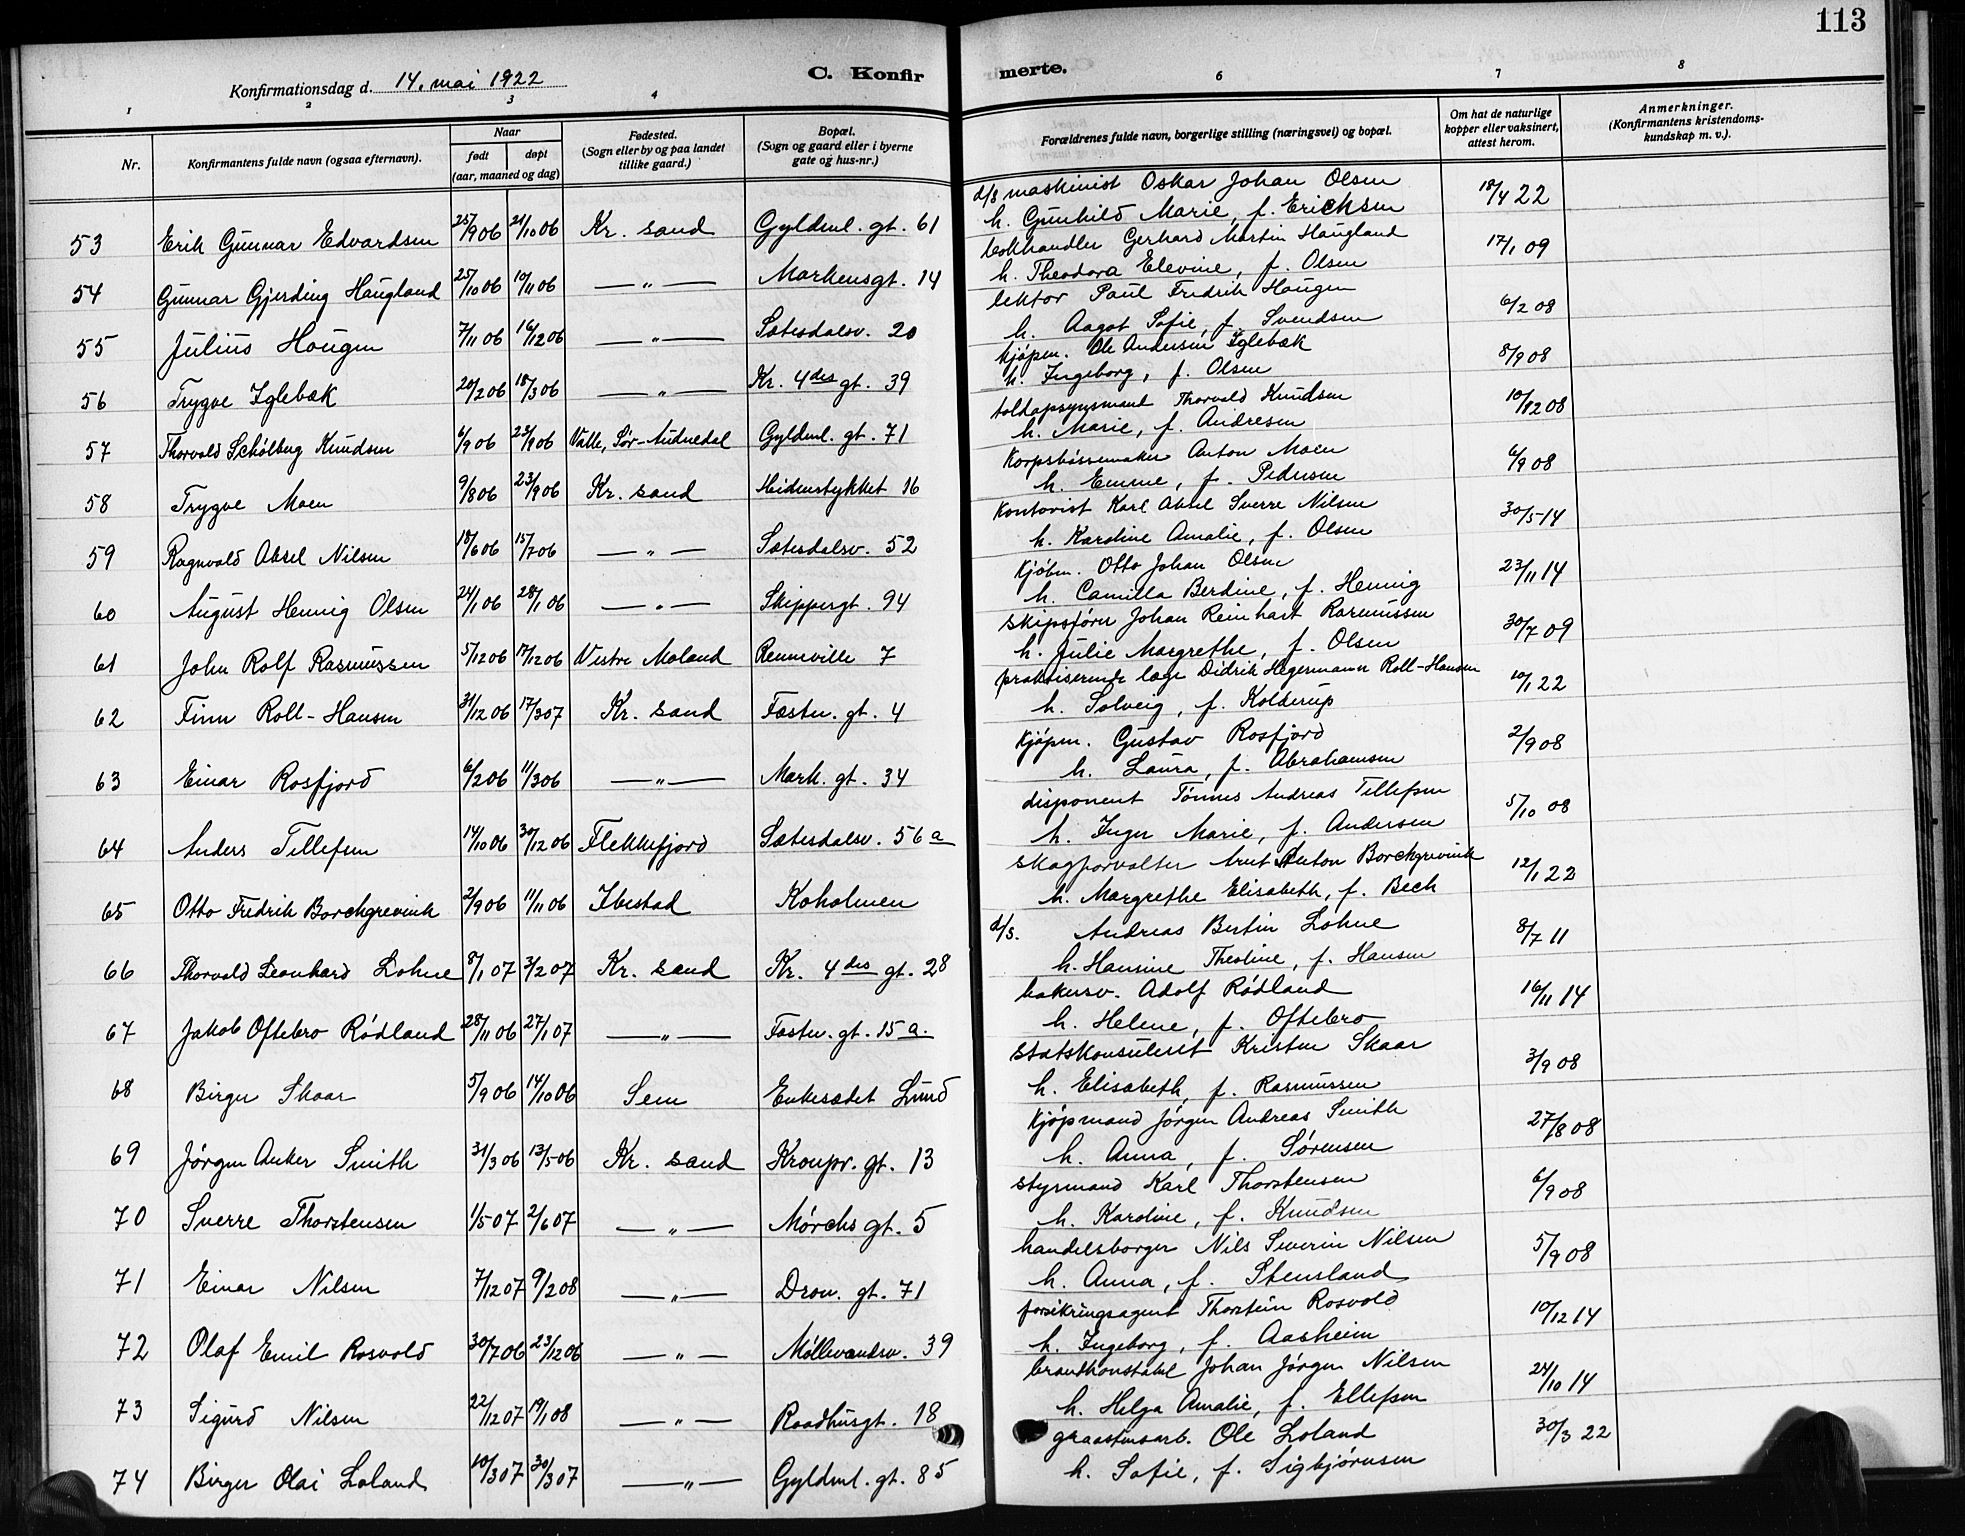 113
Konfirmationsdag d. 14. mai 1922
C. Konfirmerte.
1 2 3 4 6 7 8
Nr. Konfirmantens fulde navn (ogsaa efternavn). Naar født døpt (aar, maaned og dag) Fødested. (Sogn eller by og paa landet tillike gaard.) Bopæl. (Sogn og gaard eller i byerne gate og hus-nr.) Forældrenes fulde navn, borgerlige stilling (næringsvei) og bopæl. Om hat de naturlige kopper eller vaksinert, attest herom. Anmerkninger. (Konfirmantens kristendoms- kundskap m. v.).
d/s maskinist Oskar Johan Olsen 18/4 22
53 Erik Gunnar Edvardsen 25/9 06 21/10 06 Kr. sand Gyldenl. gt. 61 h. Gunhild Marie, f. Ericksen
bokhandler Gerhard Martin Haugland 17/1 09
54 Gunnar Gjerding Haugland 25/10 06 10/11 06 —„— Markensgt. 14 h. Theodora Elevine, f. Olsen
lektor Paul Fredrik Hougen 6/2 08
55 Julius Hougen 7/11 06 16/12 06 —„— Sætesdalsv. 20 h. Aagot Sofie, f. Svendsen
kjøpm. Ole Andersen Iglebæk 8/9 08
56 Trygve Iglebæk 20/2 06 18/3 06 —„— Kr. 4des gt. 39 h. Ingeborg, f. Olsen
toldopsynsmand Thorvald Knudsen 10/12 08
57 Thorvald Schølberg Knudsen 6/9 06 23/9 06 Valle, Sør-Audnedal Gyldenl. gt. 71 h. Marie, f. Andresen
Korpsbøssemaker Anton Moen 6/9 08
58 Trygve Moen 9/8 06 23/9 06 Kr. sand Heidenstykket 16 h. Emme, f. Pedersen
kontorist Karl Aksel Sverre Nilsen 30/5-14
59 Ragnvald Aksel Nilsen 18/6 06 15/7 06 —„— Sætesdalsv. 52 h. Karoline Amalie, f. Olsen
kjøbm. Otto Johan Olsen 23/11 14
60 August Hennig Olsen 24/1 06 28/1 06 —„— Skippergt. 94 h. Camilla Berdine, f. Hennig
skipsfører Johan Reinhart Rasmussen 30/7 09
61 John Rolf Rasmussen 5/12 06 17/12 06 Vestre Moland Renneville 7 h. Julie Margrethe, f. Olsen
praktiserende læge Didrik Hegermann Roll-Hansen 10/1 22
62 Finn Roll-Hansen 31/12 06 17/3 07 Kr. sand Fæstn. gt. 4 h. Solveig, f. Kolderup
kjøpm. Gustav Rosfjord 2/9 08
63 Einar Rosfjord 6/2 06 11/3 06 —„— Mark. gt. 34 h. Laura, f. Abrahamsen
disponent Tønnes Andreas Tellefsen 5/10 08
64 Anders Tellefsen 14/10 06 30/12 06 Flekkefjord Sætesdalsv. 56 a h. Inger Marie, f. Andersen
skogforvalter Arnt Anton Borchgrevink 12/1 22
65 Otto Fredrik Borchgrevink 2/9 06 11/11 06 Ibestad Koholmen h. Margrethe Elisabeth, f. Bech
d/s. Andreas Bertin Lohne 8/7 11
66 Thorvald Leonhard Lohne 8/1 07 3/2 07 Kr. sand Kr. 4des gt. 28 h. Hansine Theoline, f. Hansen
bakersv. Adolf Rødland 16/11 14
67 Jakob Oftebro Rødland 28/11 06 27/1 07 —„— Fæstn. gt. 15 a. h. Helene, f. Oftebro
statskonsulent Kristen Skaar 3/9 08
68 Birger Skaar 5/9 06 14/10 06 Sem Enkesætet Lund h. Elisabeth, f. Rasmussen
kjøpmand Jørgen Andreas Smith 27/8 08
69 Jørgen Anker Smith 31/3 06 13/5 06 Kr. sand Kronpr. gt. 13 h. Anna, f. Sørensen
styrmand Karl Thorstensen 6/9 08
70 Sverre Thorstensen 1/5 07 2/6 07 —„— Mørchs gt. 5 h. Karoline, f. Knudsen
handelsborger Nils Severin Nilsen 5/9 08
71 Einar Nilsen 7/12 07 9/2 08 —„— Dron. gt. 71 h. Anna, f. Stensland
forsikringsagent Thorstein Rosvold 10/12 14
72 Olaf Emil Rosvold 30/7 06 23/12 06 —„— Møllevandsv. 39 h. Ingeborg, f. Aasheim
brandkonstabel Johan Jørgen Nilsen 24/10 14
73 Sigurd Nilsen 22/12 07 19/1 08 —„— Raadhusgt. 18 h. Helga Amalie, f. Ellefsen
graastensarb. Ole Loland 30/3 22
74 Birger Olai Loland 10/3 07 30/3 07 —„— Gyldenl. gt. 85 h. Sofie, f. Sigbjørnsen